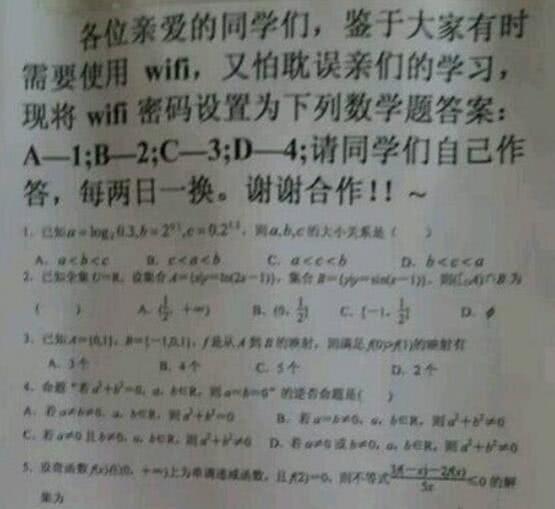 各位亲爱的同学们，鉴于大家有时
需要使用 wifi，又怕耽误亲们的学习，
现将 wifi 密码设置为下列数学题答案：
A—1;B—2;C—3;D—4;请同学们自己作
答，每两日一换。谢谢合作!! ~
1．已知a=log₂0.3,b=2^0.1,c=0.2^1.3，则a,b,c的大小关系是（ ）
A．a<b<c B．c<a<b C．a<c<b D．b<c<a
2．已知全集U=R，设集合A={x|y=ln(2x-1)}，集合B={y|y=sin(x-1)}，则(∁ᵤA)∩B为
（ ） A．(1/2，+∞) B．(0，1/2] C．[-1，1/2] D．ϕ
3．已知A={0,1}，B={-1,0,1}，f是从A到B的映射，则满足f(0)>f(1)的映射有
A．3个 B．4个 C．5个 D．2个
4．命题"若a²+b²=0，a，b∈R，则a=b=0"的逆否命题是( )
A．若a≠b≠0，a，b∈R，则a²+b²=0 B．若a=b≠0，a，b∈R，则a²+b²≠0
C．若a≠0且b≠0，a，b∈R，则a²+b²≠0 D．若a≠0或b≠0，a，b∈R，则a²+b²≠0
5．设奇函数f(x)在(0，+∞)上为单调递减函数，且f(2)=0，则不等式 (3f(-x)-2f(x))/5x ≤0 的解
集为